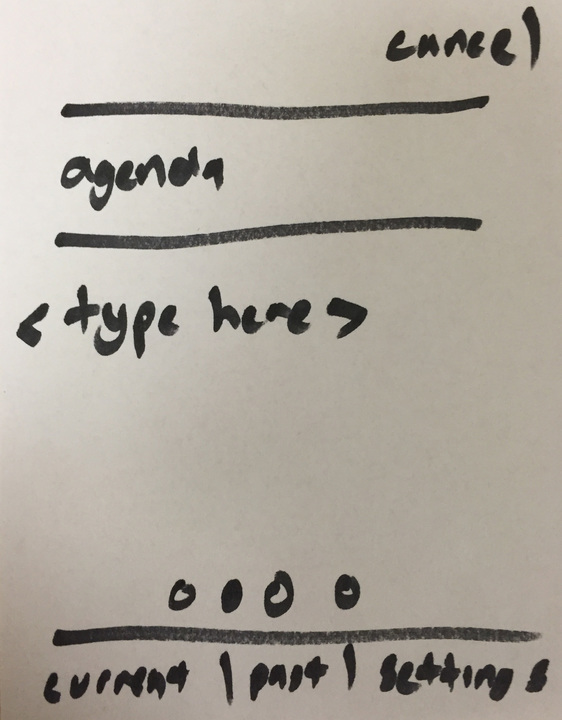 cancel
agenda
<type here>
current | past | settings